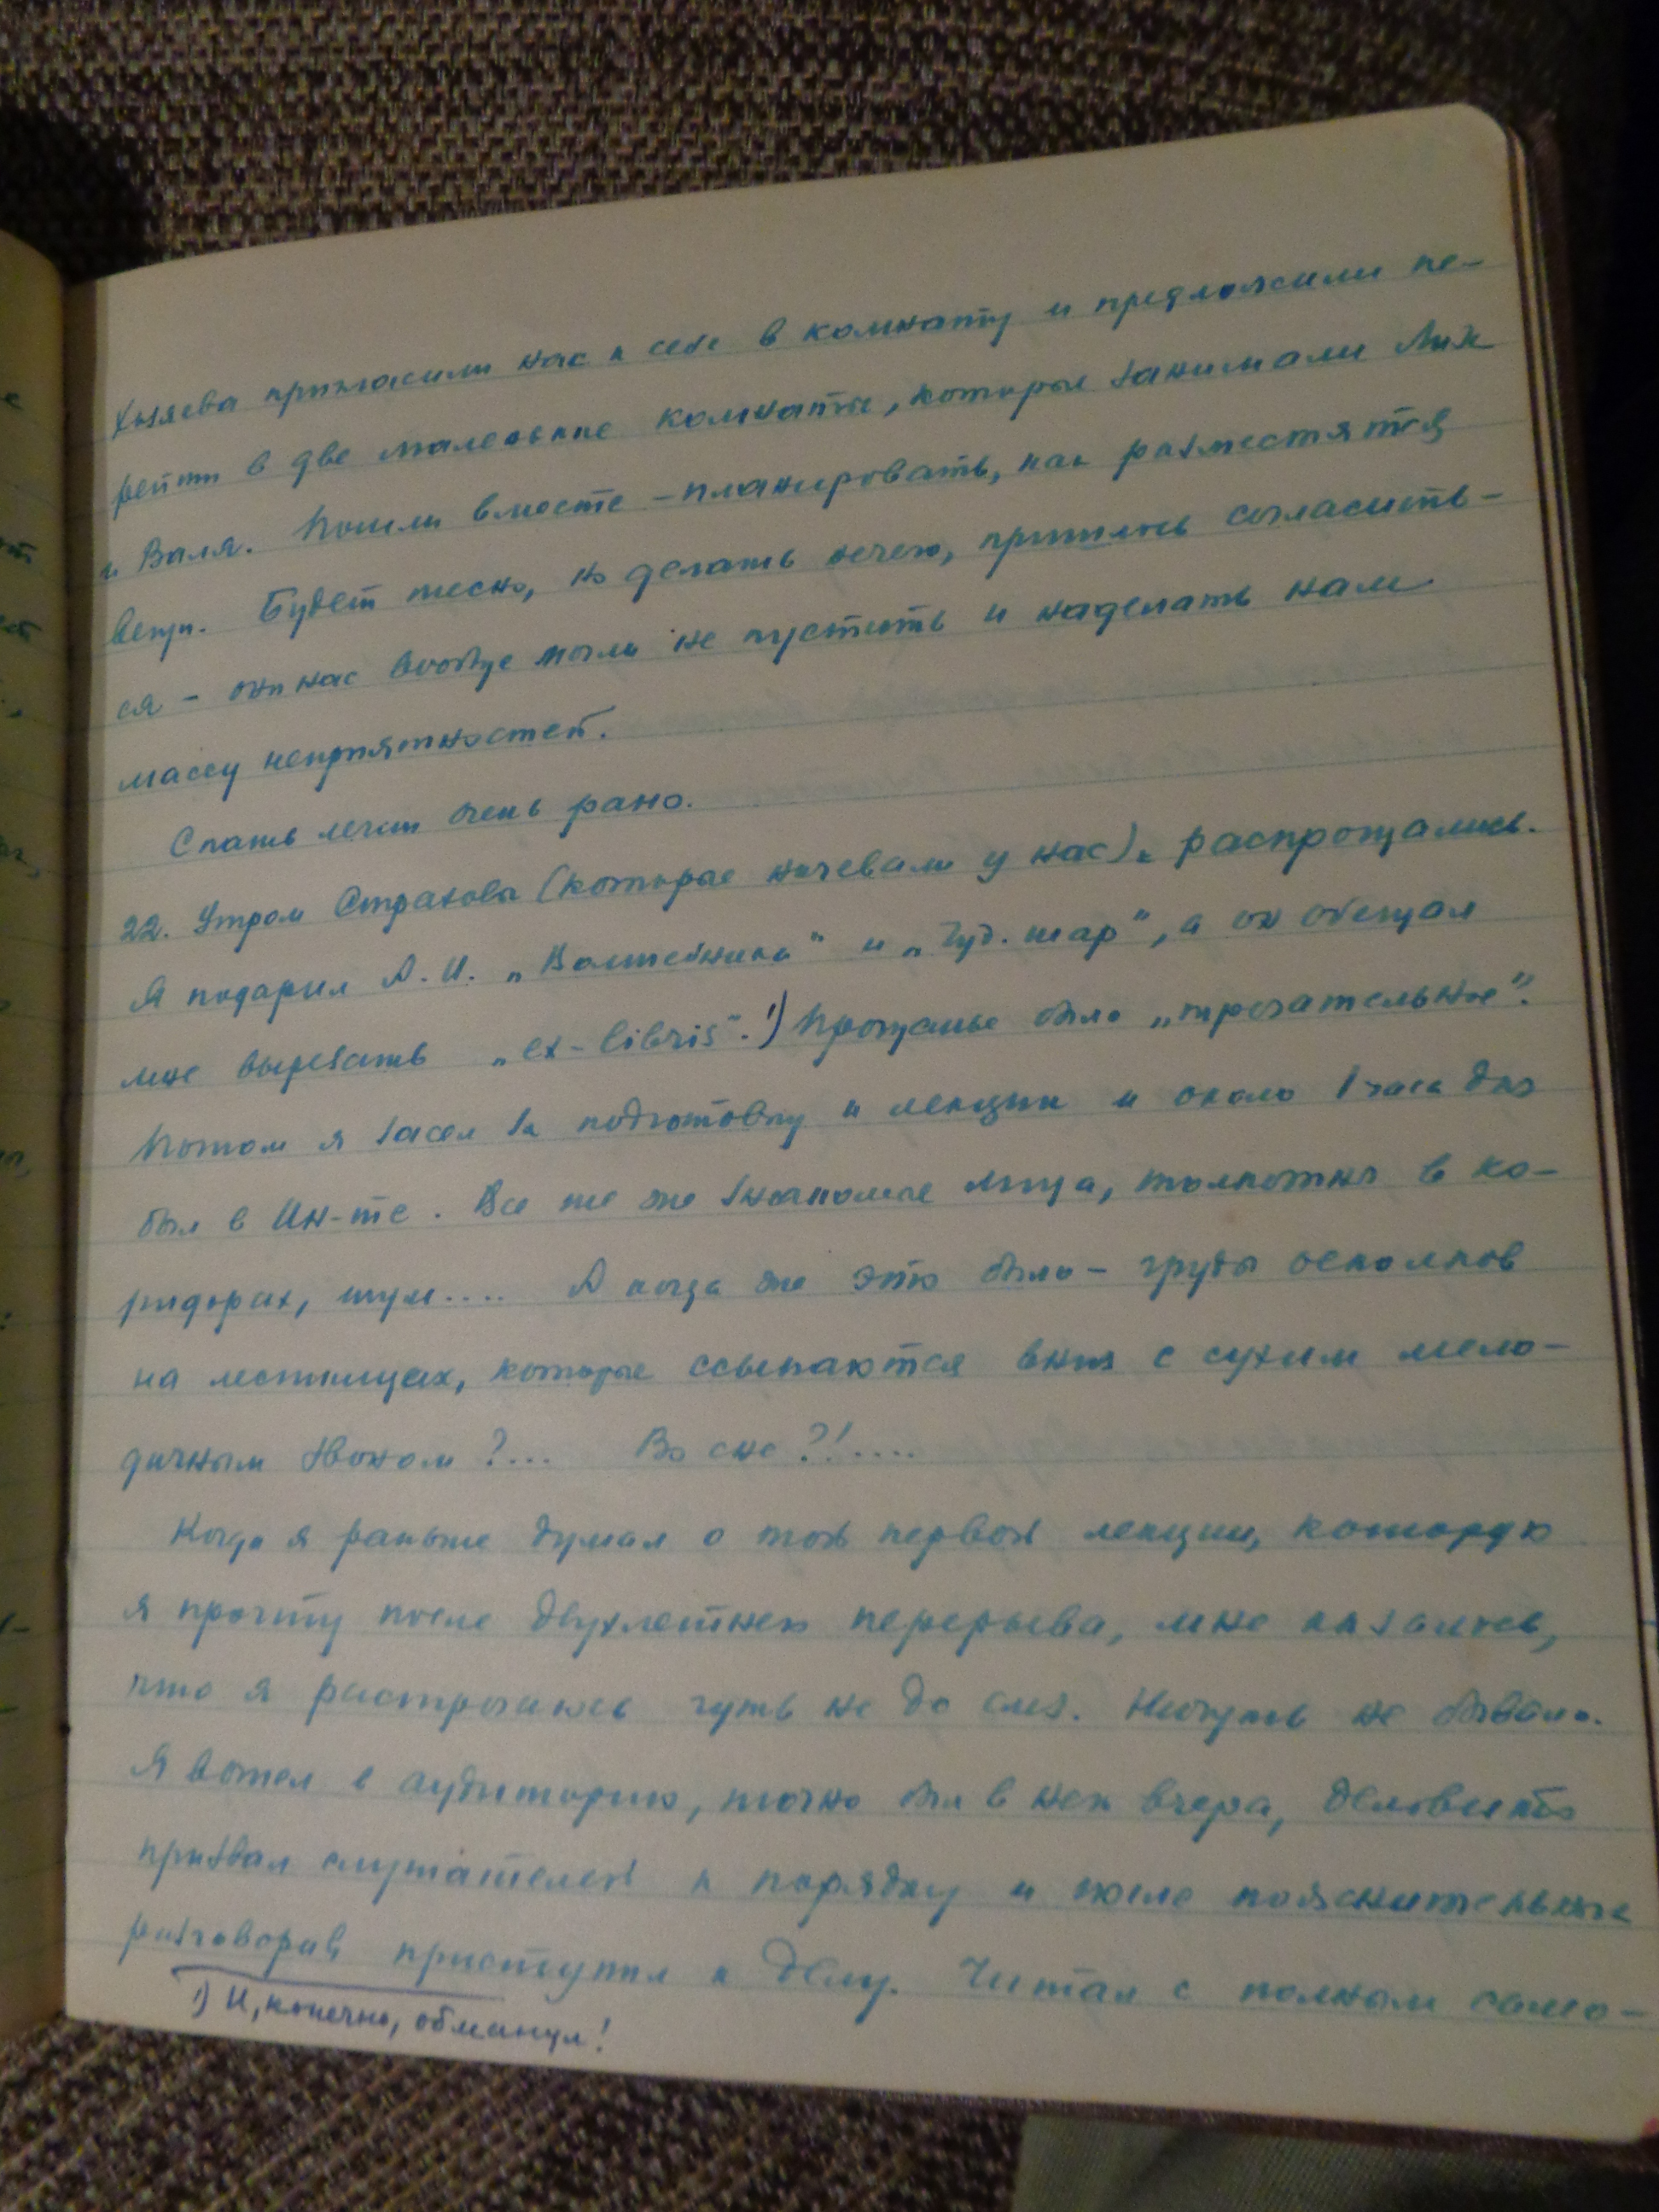 Хозяева пригласили нас к себе в комнату и предложили пе-
рейти в две маленькие комнаты, которые занимали
и Валя. Пошли вместе – планировать, как разместятся
вещи. Будет тесно, но делать нечего, пришлось согласить-
ся – они нас вообще могли не пустить и наделать нам
массу неприятностей.
Спать легли очень рано.
22. Утром Страховы (которые ночевали у нас) распрощались.
Я подарил А.И. „Волшебника" и „Чуд. шар", а он обещал
мне вырезать „ex-libris". ¹) Прощанье было „трогательное".
Потом я засел за подготовку к лекции и около 1 часа дня
был в Ин-те. Все те же знакомые лица, толкотня в ко-
ридорах, шум.... А когда же это было – груды осколков
на лестницах, которые ссыпаются вниз с сухим мело-
дичным звоном?... Во сне?!....
Когда я раньше думал о той первой лекции, которую
я прочту после двухлетнего перерыва, мне казалось,
что я растрогаюсь чуть не до слез. Ничуть не бывало.
Я вошел в аудиторию, точно был в ней вчера, деловито
призвал слушателей к порядку и после пояснительных
разговоров приступил к делу. Читал с полным само-
¹) И, конечно, обманул!